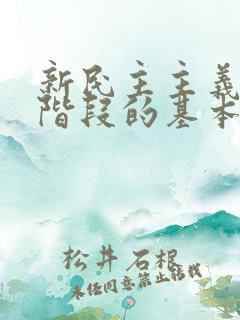 新民主主義
階段的基本
松井石根
未经同意禁止转载